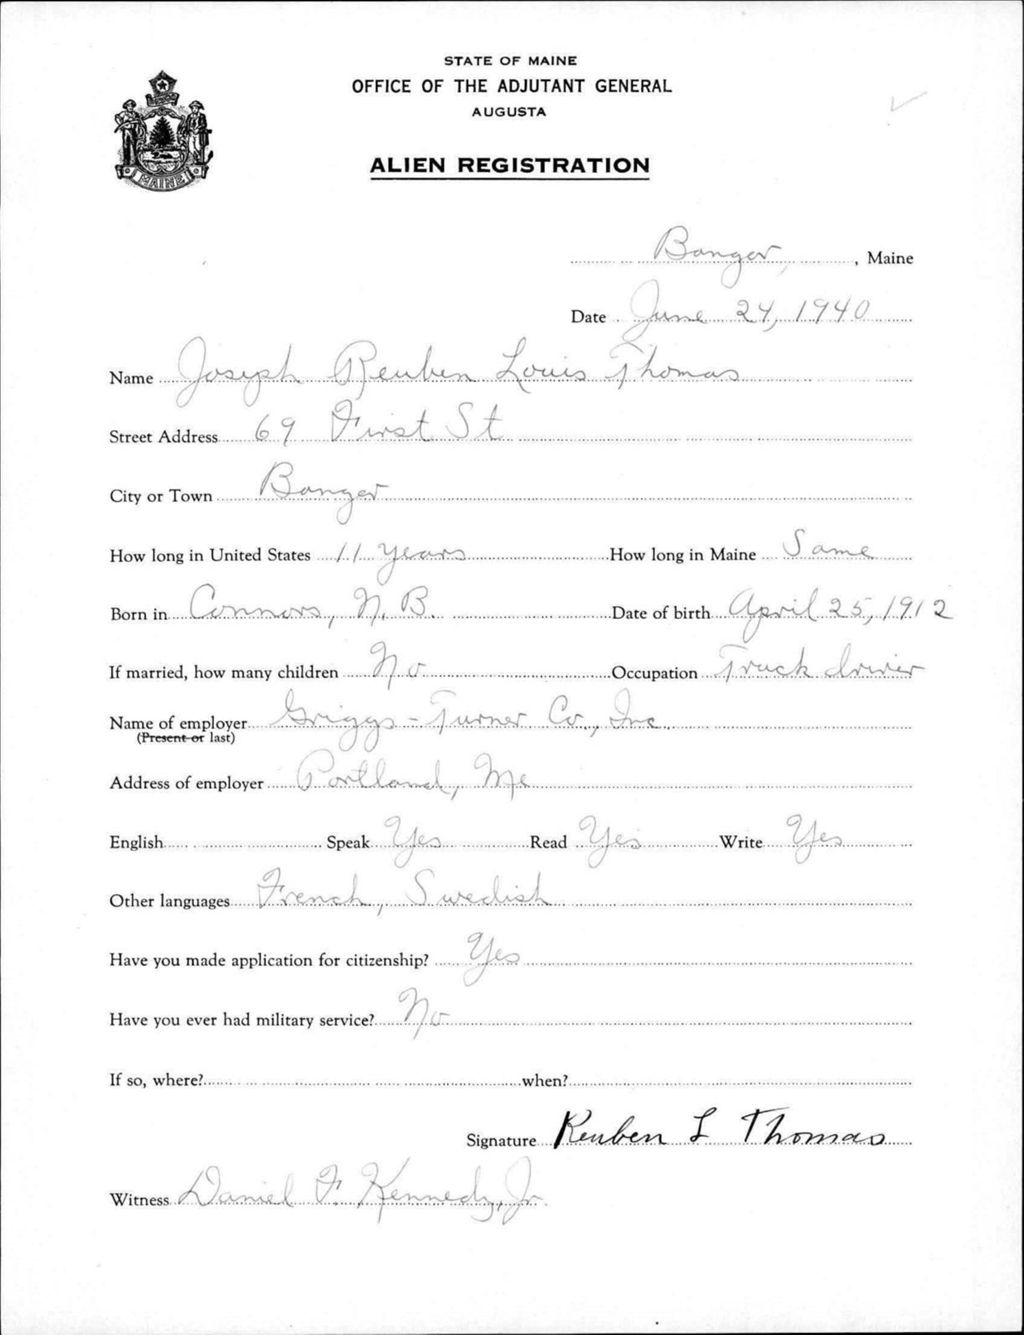 STATE OF MAINE
OFFICE OF THE ADJUTANT GENERAL
AUGUSTA
ALIEN REGISTRATION
MAINE
Bangor, , Maine
Date June 24, 1940
Name Joseph Reuben Louis Thomas
Street Address 69 First St
City or Town Bangor
How long in United States 11 years How long in Maine Same
Born in Connors, N. B. Date of birth April 25, 1912
If married, how many children No Occupation Truck driver
Name of employer Griggs-Turner Co., Inc.
(Present or last)
Address of employer Portland, Me
English Speak Yes Read Yes Write Yes
Other languages French, Swedish
Have you made application for citizenship? Yes
Have you ever had military service? No
If so, where? when?
Signature Reuben L Thomas
Witness Daniel F. Kennedy, Jr.